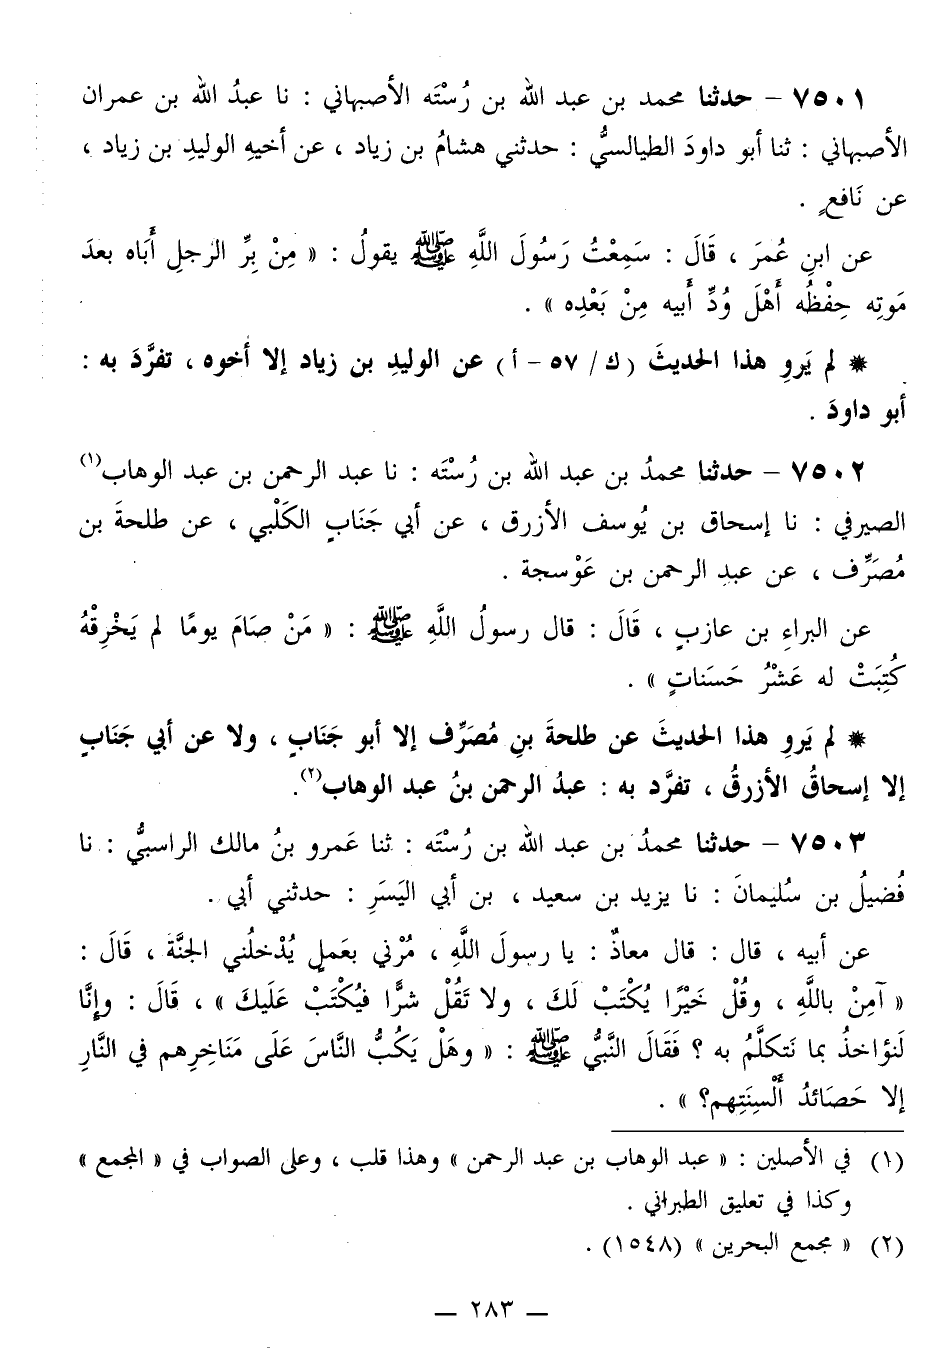 ٧٥٠١ – حدثنا محمد بن عبد الله بن رُسْتَه الأصبهاني : نا عبدُ الله بن عمران
الأصبهاني : ثنا أبو داودَ الطيالسيُّ : حدثني هشامُ بن زياد ، عن أخيهِ الوليدِ بن زياد ،
عن نَافعٍ .
عن ابنِ عُمرَ ، قَالَ : سَمِعْتُ رَسُولَ اللَّهِ ﷺ يقولُ : « مِنْ بِرِّ الرَجلِ أَبَاه بعدَ
مَوتِه حِفْظُه أَهْلَ وُدِّ أَبيه مِنْ بَعْدِه » .
✷ لم يَروِ هذا الحديثَ (ك / ٥٧ – أ) عن الوليدِ بن زياد إلا أخوه ، تفرَّدَ به :
أبو داودَ .
٧٥٠٢ – حدثنا محمدُ بن عبد الله بن رُسْتَه : نا عبد الرحمن بن عبد الوهاب(١)
الصيرفي : نا إسحاق بن يُوسف الأزرق ، عن أبي جَنَابٍ الكَلْبي ، عن طلحةَ بن
مُصَرِّف ، عن عبدِ الرحمن بن عَوْسجة .
عن البراءِ بن عازبٍ ، قَالَ : قال رسولُ اللَّهِ ﷺ : « مَنْ صَامَ يومًا لم يَخْرِقْهُ
كُتِبَتْ له عَشْرُ حَسَناتٍ » .
✷ لم يَروِ هذا الحديثَ عن طلحةَ بنِ مُصَرِّف إلا أبو جَنَابٍ ، ولا عن أبي جَنَابٍ
إلا إسحاقُ الأزرقُ ، تفرَّد به : عبدُ الرحمن بنُ عبد الوهاب(٢).
٧٥٠٣ – حدثنا محمدُ بن عبد الله بن رُسْتَه : ثنا عَمرو بنُ مالك الراسبيُّ : نا
فُضيلُ بن سُليمانَ : نا يزيد بن سعيد ، بن أبي اليَسَرِ : حدثني أبي .
عن أبيه ، قال : قال معاذٌ : يا رسولَ اللَّهِ ، مُرْني بعَملٍ يُدْخلُني الجنَّةَ ، قَالَ :
« آمِنْ باللَّهِ ، وقُلْ خَيْرًا يُكْتَبْ لَكَ ، ولا تَقُلْ شرًّا فيُكْتَبْ عَلَيكَ » ، قَالَ : وإنَّا
لَنؤاخذُ بما نَتكلَّمُ به ؟ فَقَالَ النَّبيُّ ﷺ : « وهَلْ يَكُبُّ النَّاسَ عَلَى مَنَاخِرِهم في النَّارِ
إلا حَصَائدُ أَلْسِنَتِهم؟ » .
(١) في الأصلين : « عبد الوهاب بن عبد الرحمن » وهذا قلب ، وعلى الصواب في « المجمع »
وكذا في تعليق الطبراني .
(٢) « مجمع البحرين » (١٥٤٨) .
— ٢٨٣ —